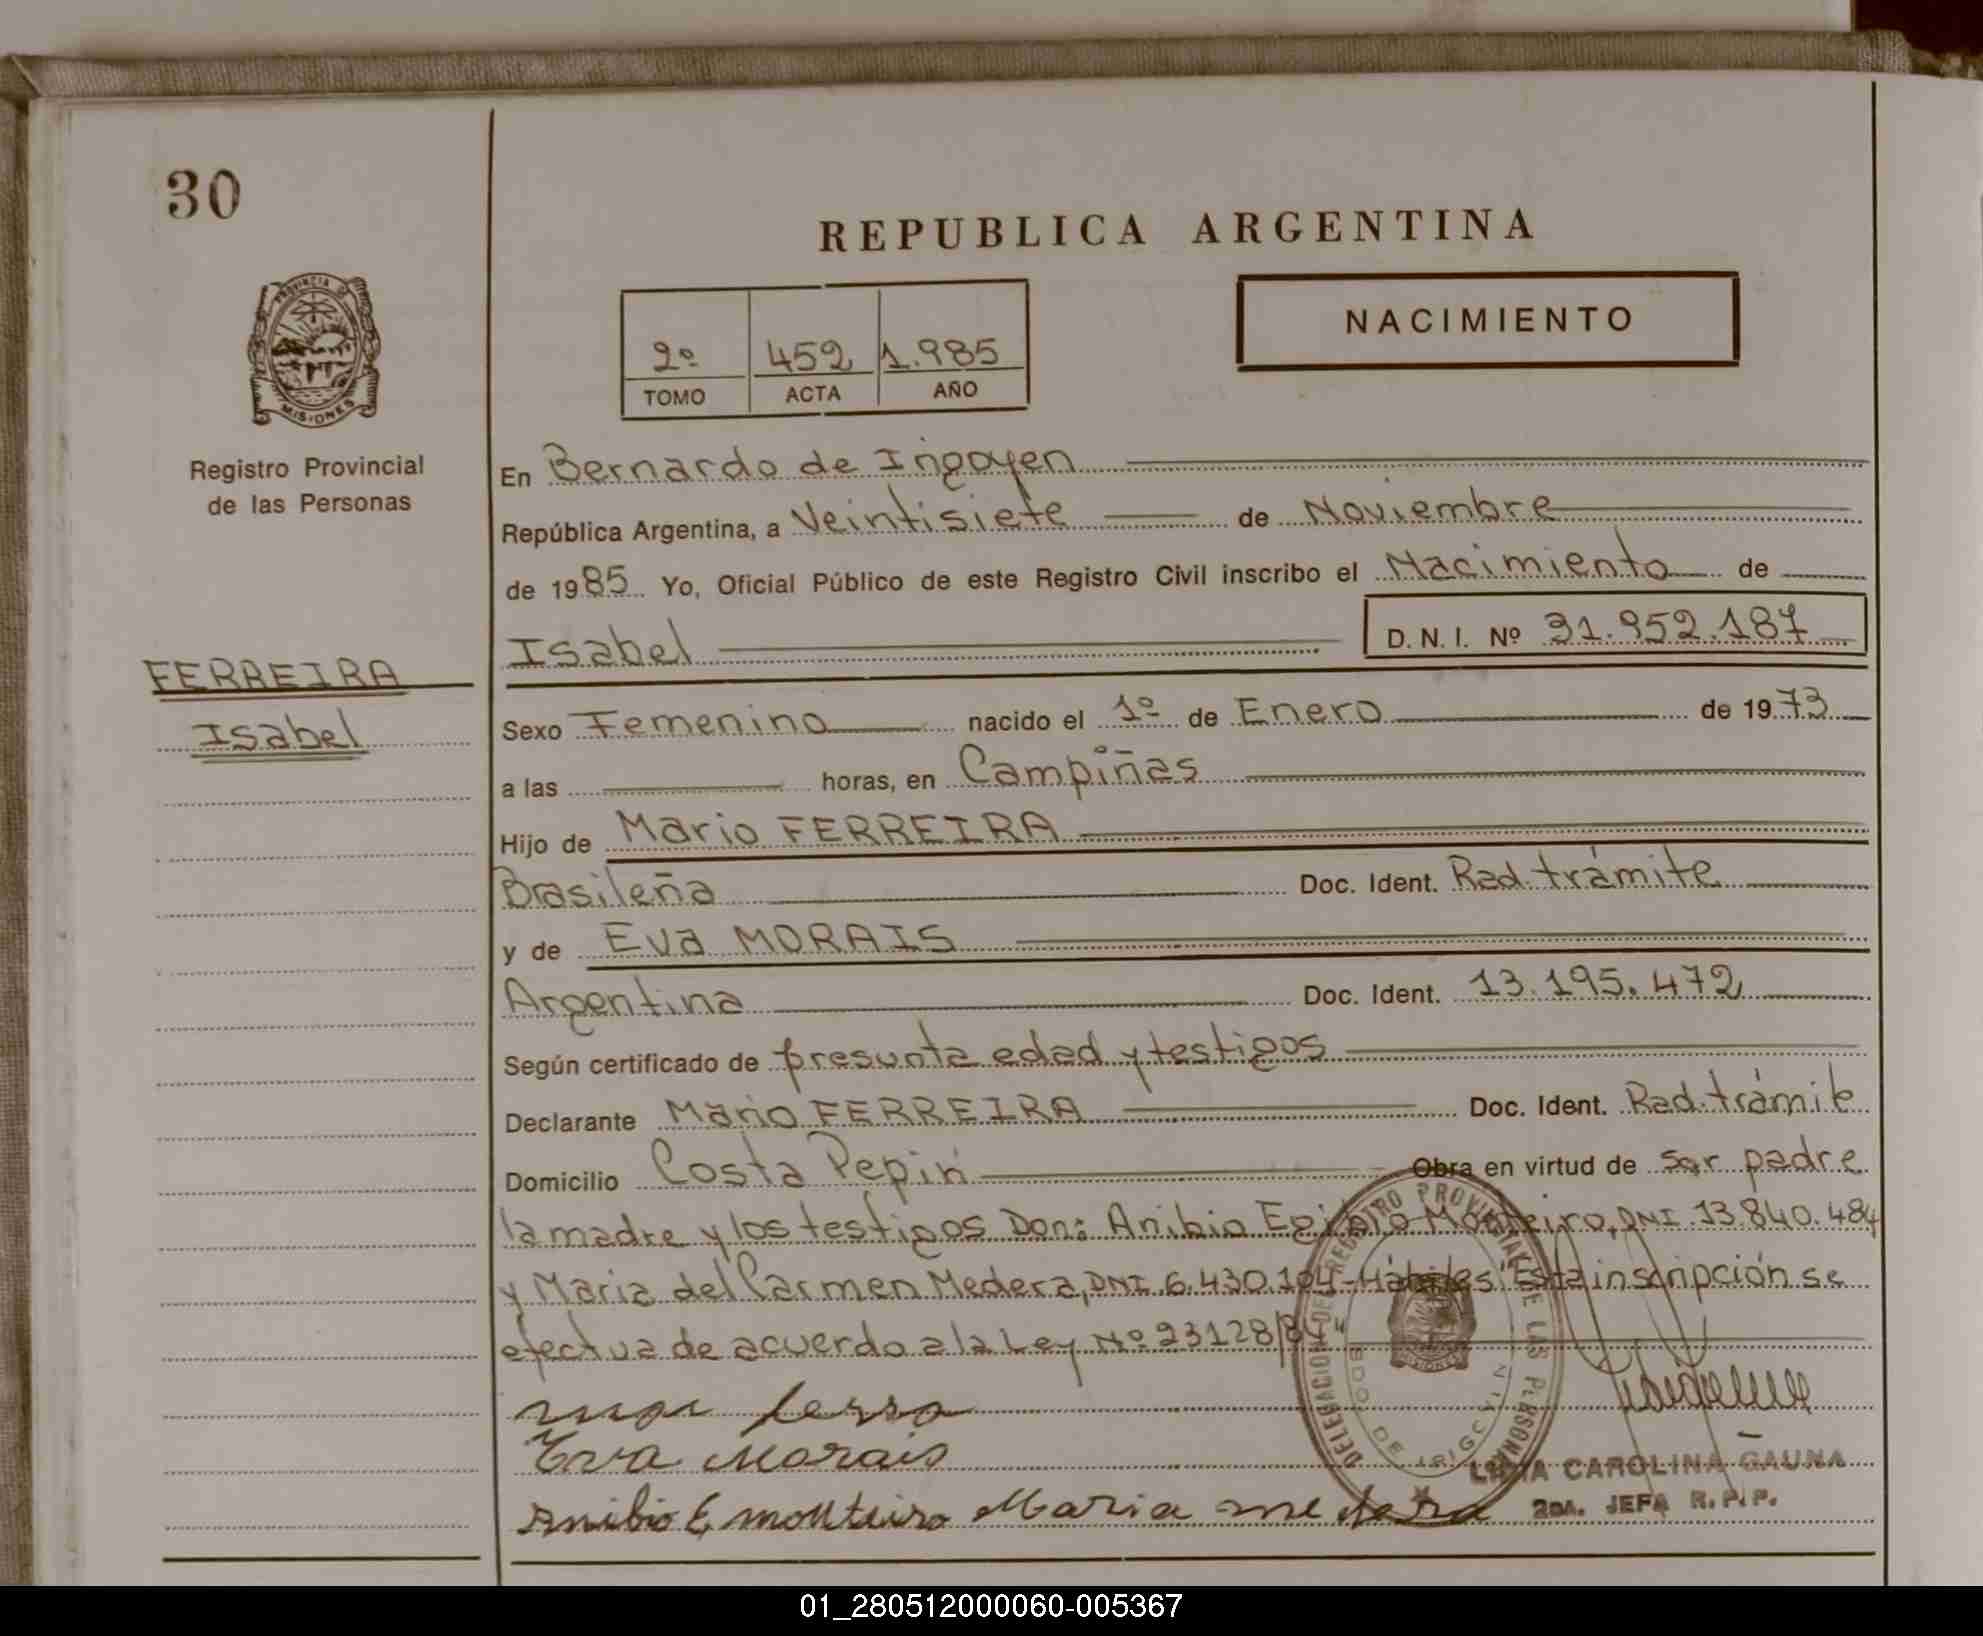 30
REPUBLICA ARGENTINA
NACIMIENTO
2º 452 1.985
TOMO ACTA AÑO
PROVINCIA DE
MISIONES
Registro Provincial
de las Personas
FERREIRA
Isabel
En Bernardo de Irigoyen
República Argentina, a Veintisiete de Noviembre
de 1985 Yo, Oficial Público de este Registro Civil inscribo el Nacimiento de
Isabel D. N. I. Nº 31.952.187
Sexo Femenino nacido el 1º de Enero de 1973
a las horas, en Campiñas
Hijo de Mario FERREIRA
Brasileña Doc. Ident. Rad. trámite
y de Eva MORAIS
Argentina Doc. Ident. 13.195.472
Según certificado de presunta edad y testigos
Declarante Mario FERREIRA Doc. Ident. Rad. trámite
Domicilio Costa Pepiri Obra en virtud de ser padre
la madre y los testigos Don: Anibio Egidio Monteiro, DNI 13.840.484
y Maria del Carmen Medera, DNI 6.430.104 - Hábiles "Esta inscripción se
efectua de acuerdo a la Ley Nº 23128/84"
Eva Morais
Anibio E, monteiro Maria medera
DELEGACION DEL REGISTRO PROVINCIAL DE LAS PERSONAS
BDO. DE IRIGOYEN
CAROLINA GAUNA
2DA. JEFA R.P.P.
01_280512000060-005367